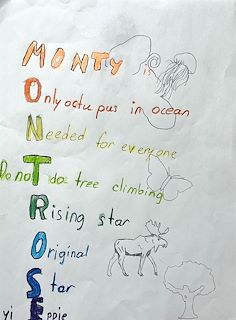 MONTY is
Only octu pus in ocean
Needed for everyone
Do not do tree climbing
Rising star
Original
Star
Eppie